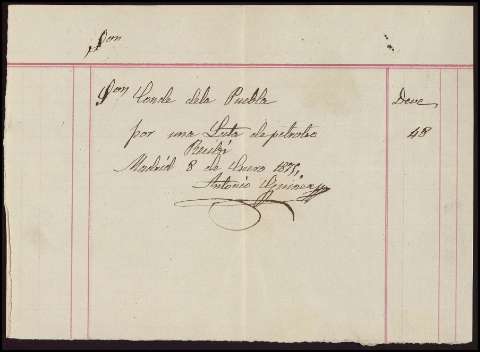 Son
Son Conde dela Puebla Deve
por una Lata de petroleo 48
Recibí
Madrid 8 de Enero 1875,
Antonio